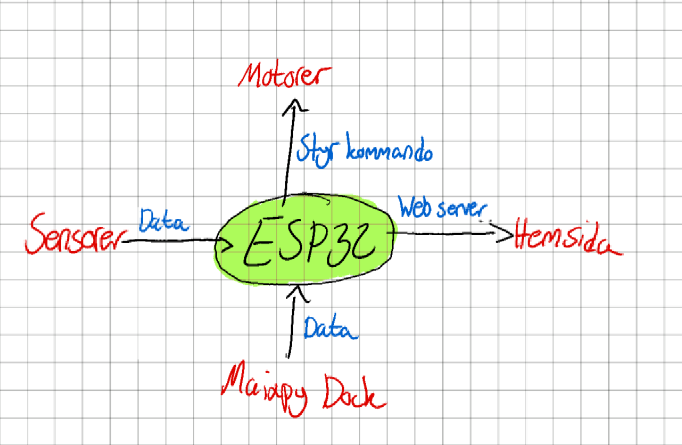 Motorer
Styr kommando
Sensorer
Data
ESP32
Web server
Hemsida
Data
Maixpy Dock